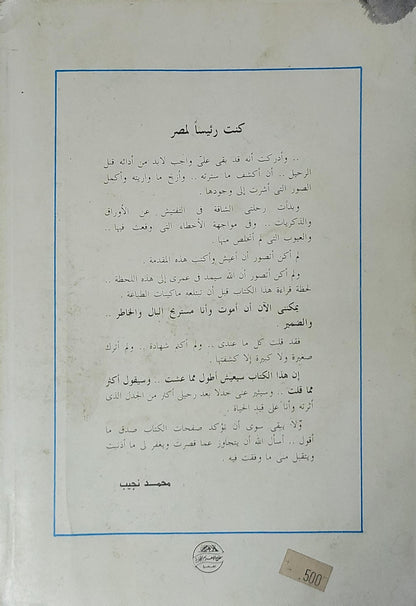 كنت رئيساً لمصر
.. وأدركت أنه قد بقى علىّ واجب لابد من أدائه قبل
الرحيل .. أن أكشف ما سترته .. وأزيح ما واريته وأكمل
الصور التى أشرت إلى وجودها .
وبدأت رحلتى الشاقة فى التفتيش عن الأوراق
والذكريات .. وفى مواجهة الأخطاء التى وقعت فيها ..
والعيوب التى لم أتخلص منها .
لم أكن أتصور أن أعيش وأكتب هذه المقدمة .
ولم أكن أتصور أن الله سيمد فى عمرى إلى هذه اللحظة ..
لحظة قراءة هذا الكتاب قبل أن تبتلعه ماكينات الطباعة .
يمكننى الآن أن أموت وأنا مستريح البال والخاطر ..
والضمير .
فقد قلت كل ما عندى .. ولم أكتم شهادة .. ولم أترك
صغيرة ولا كبيرة إلا كشفتها .
إن هذا الكتاب سيعيش أطول مما عشت .. وسيقول أكثر
مما قلت .. وسيثير عنى جدلاً بعد رحيلى أكثر من الجدل الذى
أثرته وأنا على قيد الحياة .
ولا يبقى سوى أن تؤكد صفحات الكتاب صدق ما
أقول .. أسأل الله أن يتجاوز عما قصرت ويغفر لى ما أذنبت
ويتقبل منى ما وفقت فيه .
محمد نجيب
500